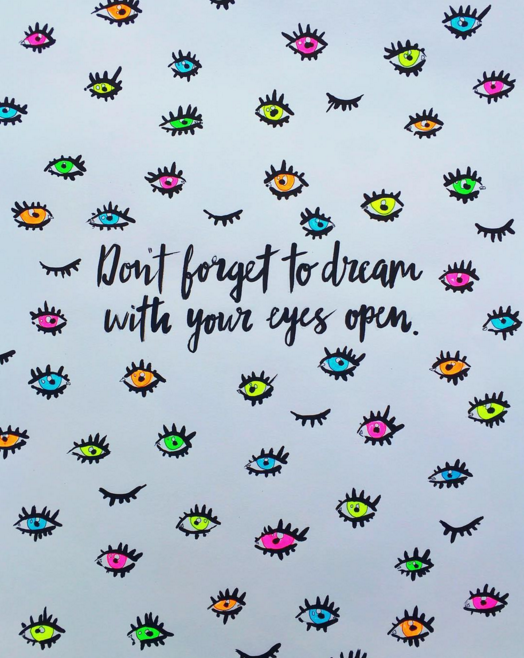 Don't forget to dream
with your eyes open.